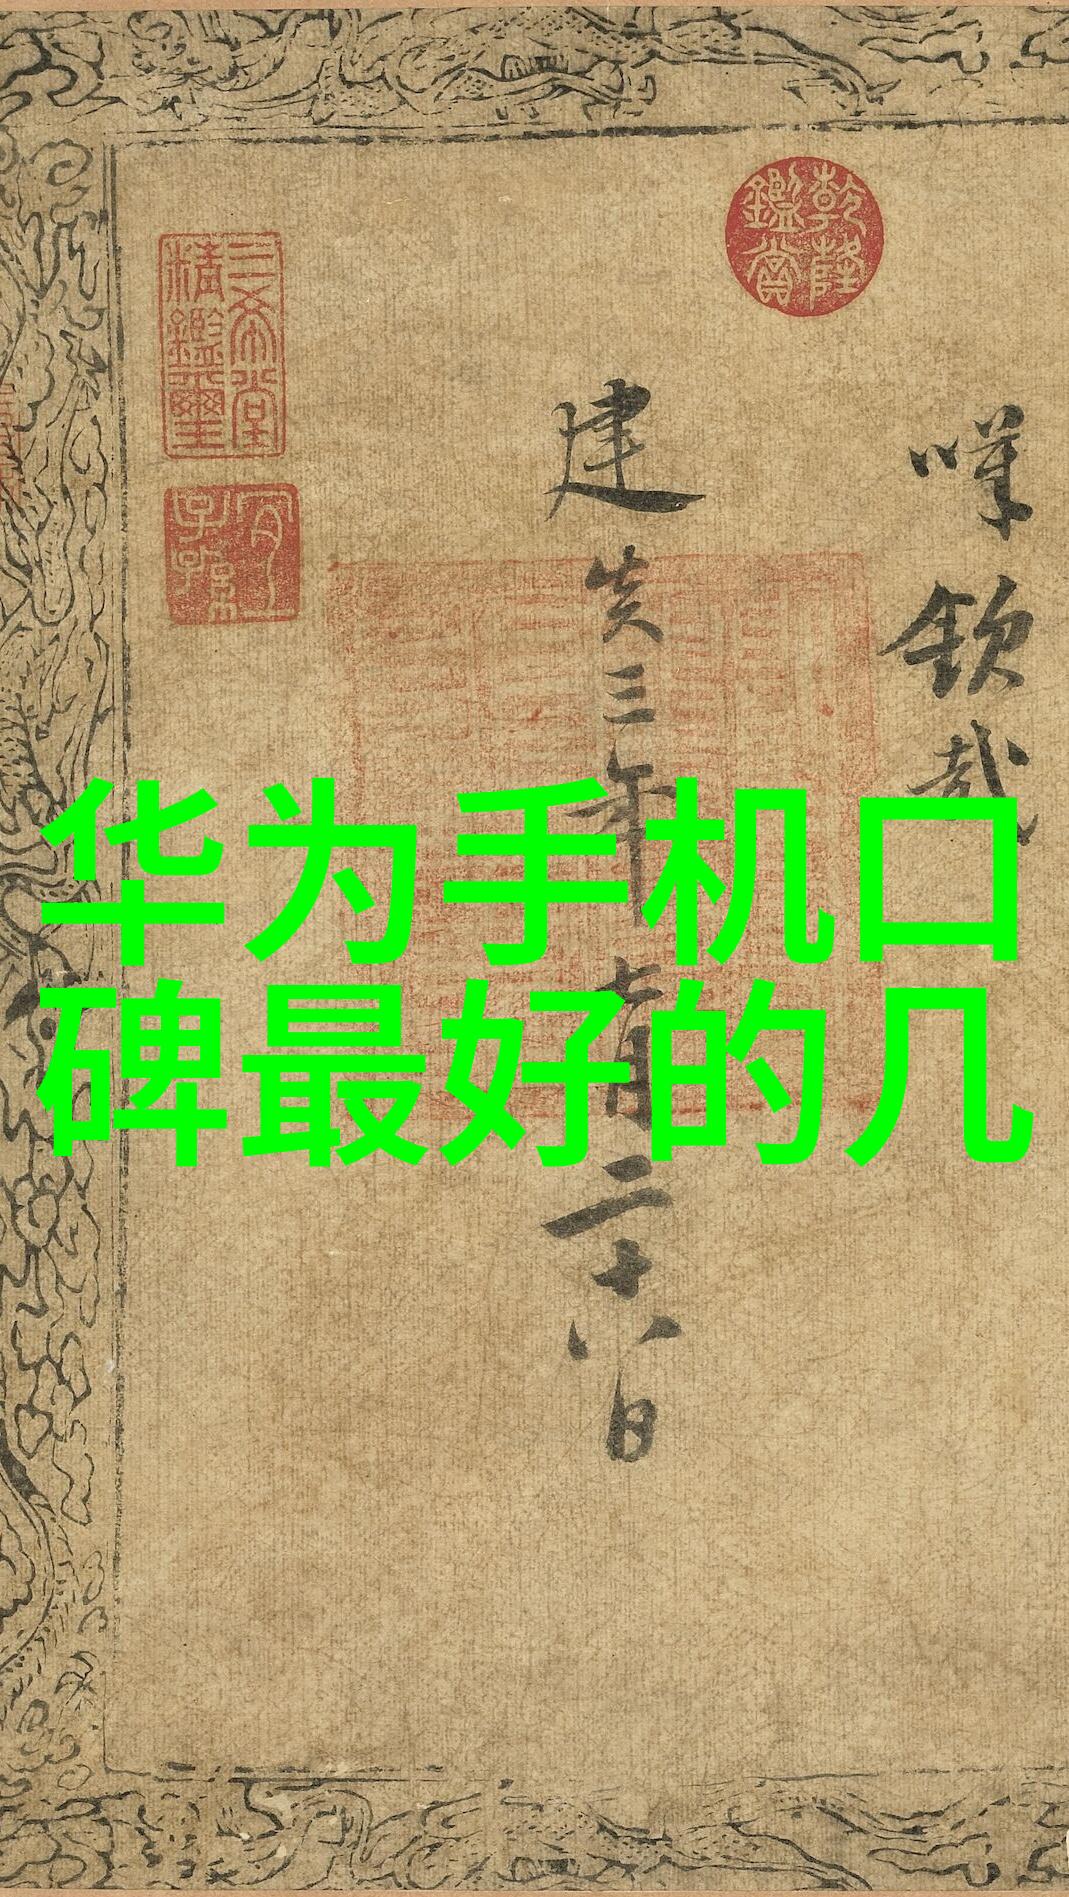 华为手机口
碑最好的几
乾隆
鑑賞
欽哉
建炎三年七月二十八日
三希堂
精鑑璽
宜
子孫